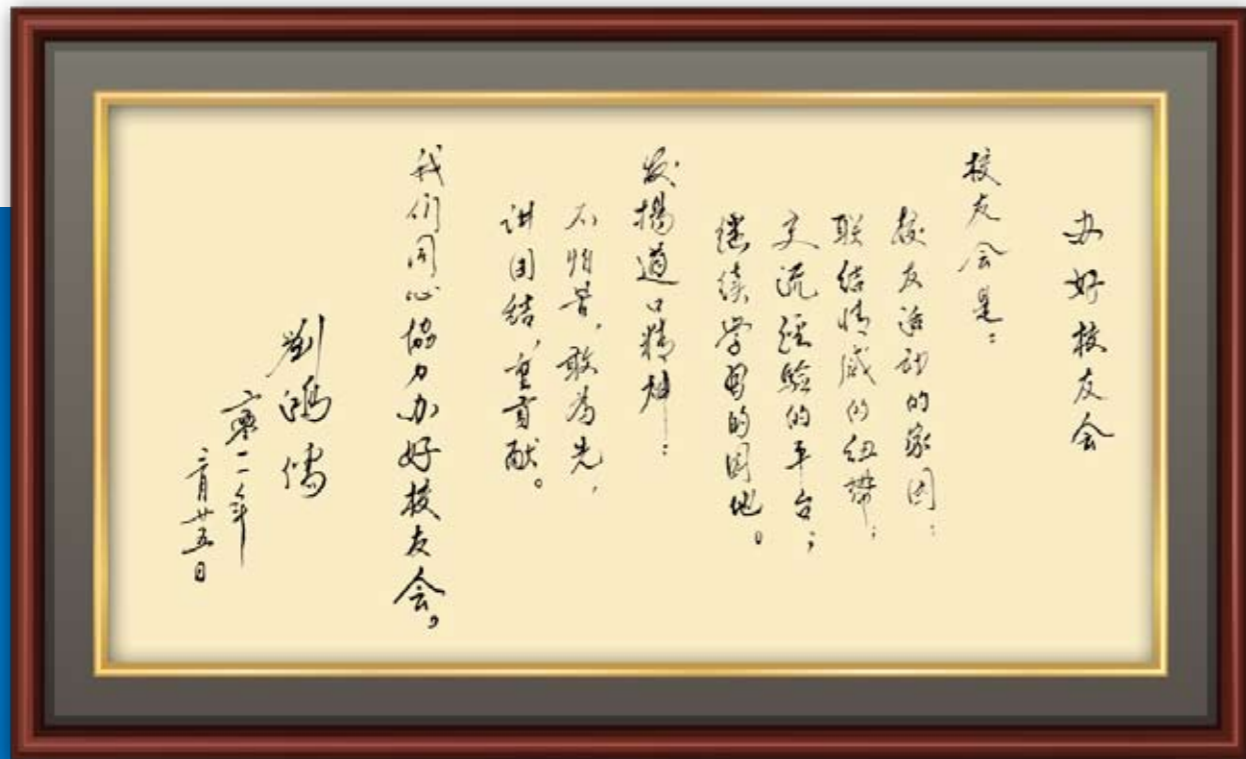 办好校友会
校友会是：
校友活动的家园；
联结情感的纽带；
交流经验的平台；
继续学习的园地。
发扬道口精神：
不怕苦，敢为先，
讲团结，重贡献。
我们同心协力办好校友会。
刘鸿儒
二〇一二年
二月廿五日